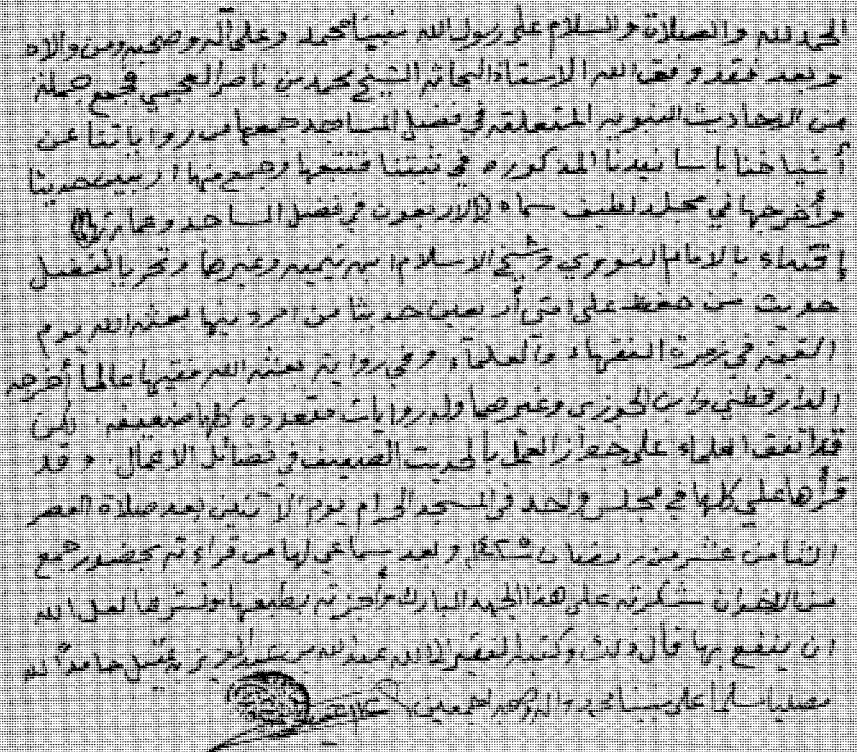 الحمد لله والصلاة والسلام على رسول الله نبينا محمد وعلى آله وصحبه ومن والاه
وبعد فقد وفق الله الاستاذ البحاثه الشيخ محمد بن ناصر العجمي فجمع جملة
من الأحاديث النبويه المتعلقه في فضل المساجد جمعها من رواياتنا عن
أشياخنا بأسانيدنا المذكوره في ثبتنا فتتبعها وجمع منها اربعين حديثا
وأخرجها في مجلد لطيف سماه (الاربعون في فضل المساجد وعمارتها)
إقتداء بالامام النووي وشيخ الاسلام ابن تيميه وغيرها وتحريا لفضل
حديث من حفظ على امتي أربعين حديثا من امر دينها بعثه الله يوم
القيمة في زمرة الفقهاء والعلماء وفي رواية بعثه الله فقيها عالما أخرجه
الدارقطني وابن الجوزي وغيرهما وله روايات متعدده كلها ضعيفه لكن
قد اتفق العلماء على جواز العمل بالحديث الضعيف في فضائل الاعمال وقد
قرأها علي كلها في مجلس واحد في المسجد الحرام يوم الاثنين بعد صلاة العصر
الثامن عشر من رمضان ١٤٢٥ وبعد سماعي لها من قراءته بحضور جمع
من الاخوان شكرته على هذا الجهد المبارك وأجزته بطبعها ونشرها لعل الله
ان ينفع بها قال ذلك وكتبه الفقير الى الله عبد الله بن عبد العزيز بن عقيل حامداً لله
مصليا مسلما على نبينا محمد وآله وصحبه اجمعين